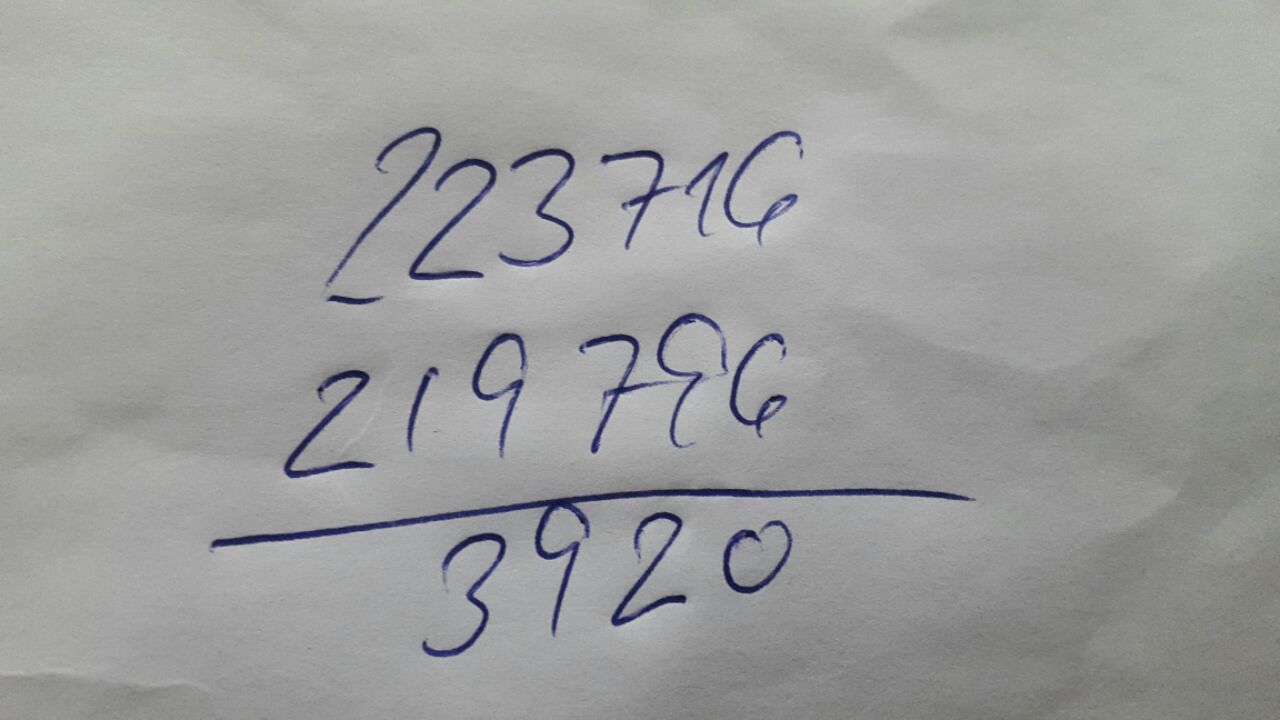 223716
219796
3920